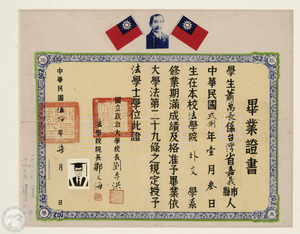 畢業證書
學生蕭萬長係台灣省嘉義縣市人
中華民國 年壹月叁日
生在本校法學院外交學系
修業期滿成績及格准予畢業依
大學法第二十九條之規定授予
法學士學位此證
國立政治大學校長劉季洪
法學院院長鄭
中華民國 年 月